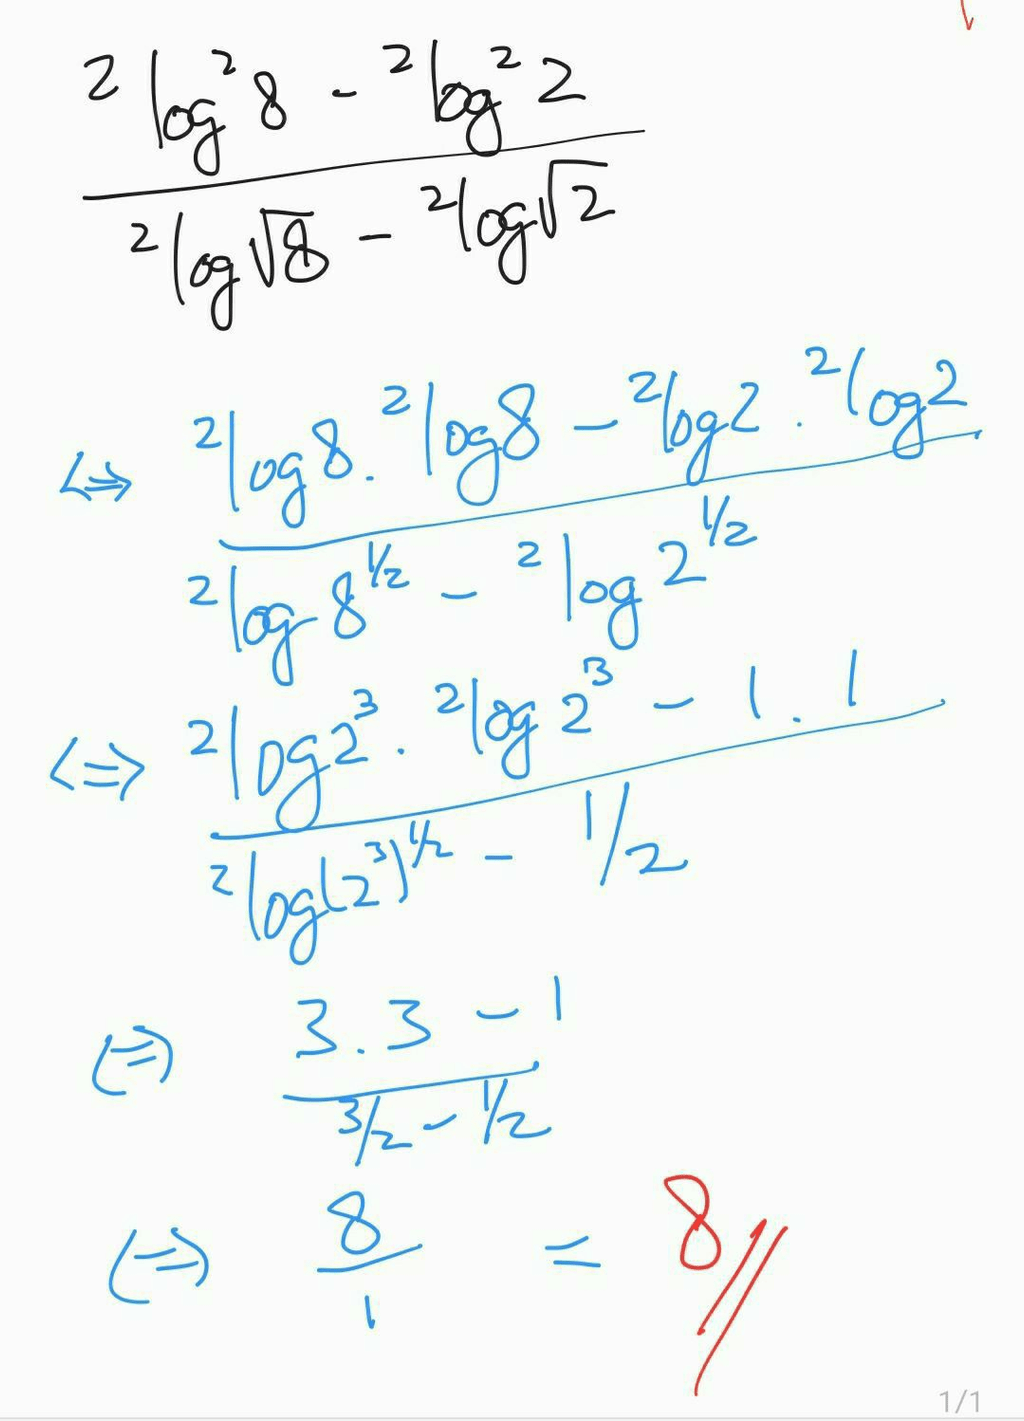 ²log²8 - ²log²2
²log√8 - ²log√2
<=> ²log8 . ²log8 - ²log2 . ²log2
²log8^1/2 - ²log2^1/2
<=> ²log2³ . ²log2³ - 1 . 1
²log(2³)^1/2 - 1/2
<=> 3 . 3 - 1
3/2 - 1/2
<=> 8 = 8
1
1/1